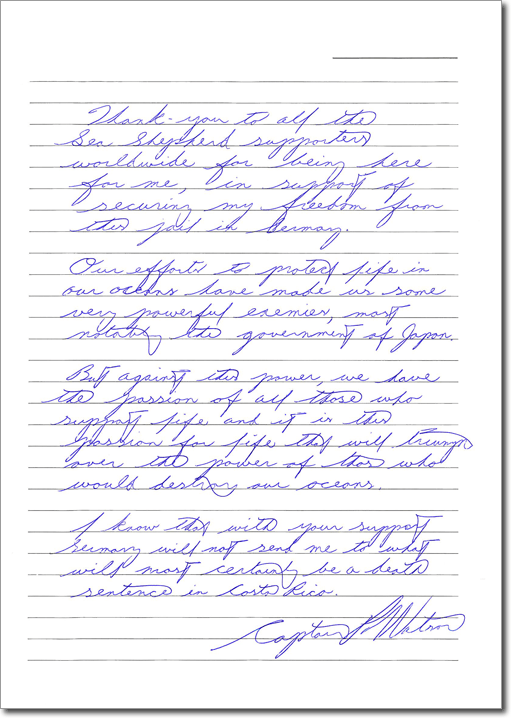 Thank-you to all the
Sea Shepherd supporters
worldwide for being here
for me, in support of
securing my freedom from
this jail in Germany.
Our efforts to protect life in
our oceans have made us some
very powerful enemies, most
notably the government of Japan.
But against this power, we have
the passion of all those who
support life and it is this
passion for life that will triumph
over the power of those who
would destroy our oceans.
I know that with your support
Germany will not send me to what
will most certainly be a death
sentence in Costa Rica.
Captain P Watson